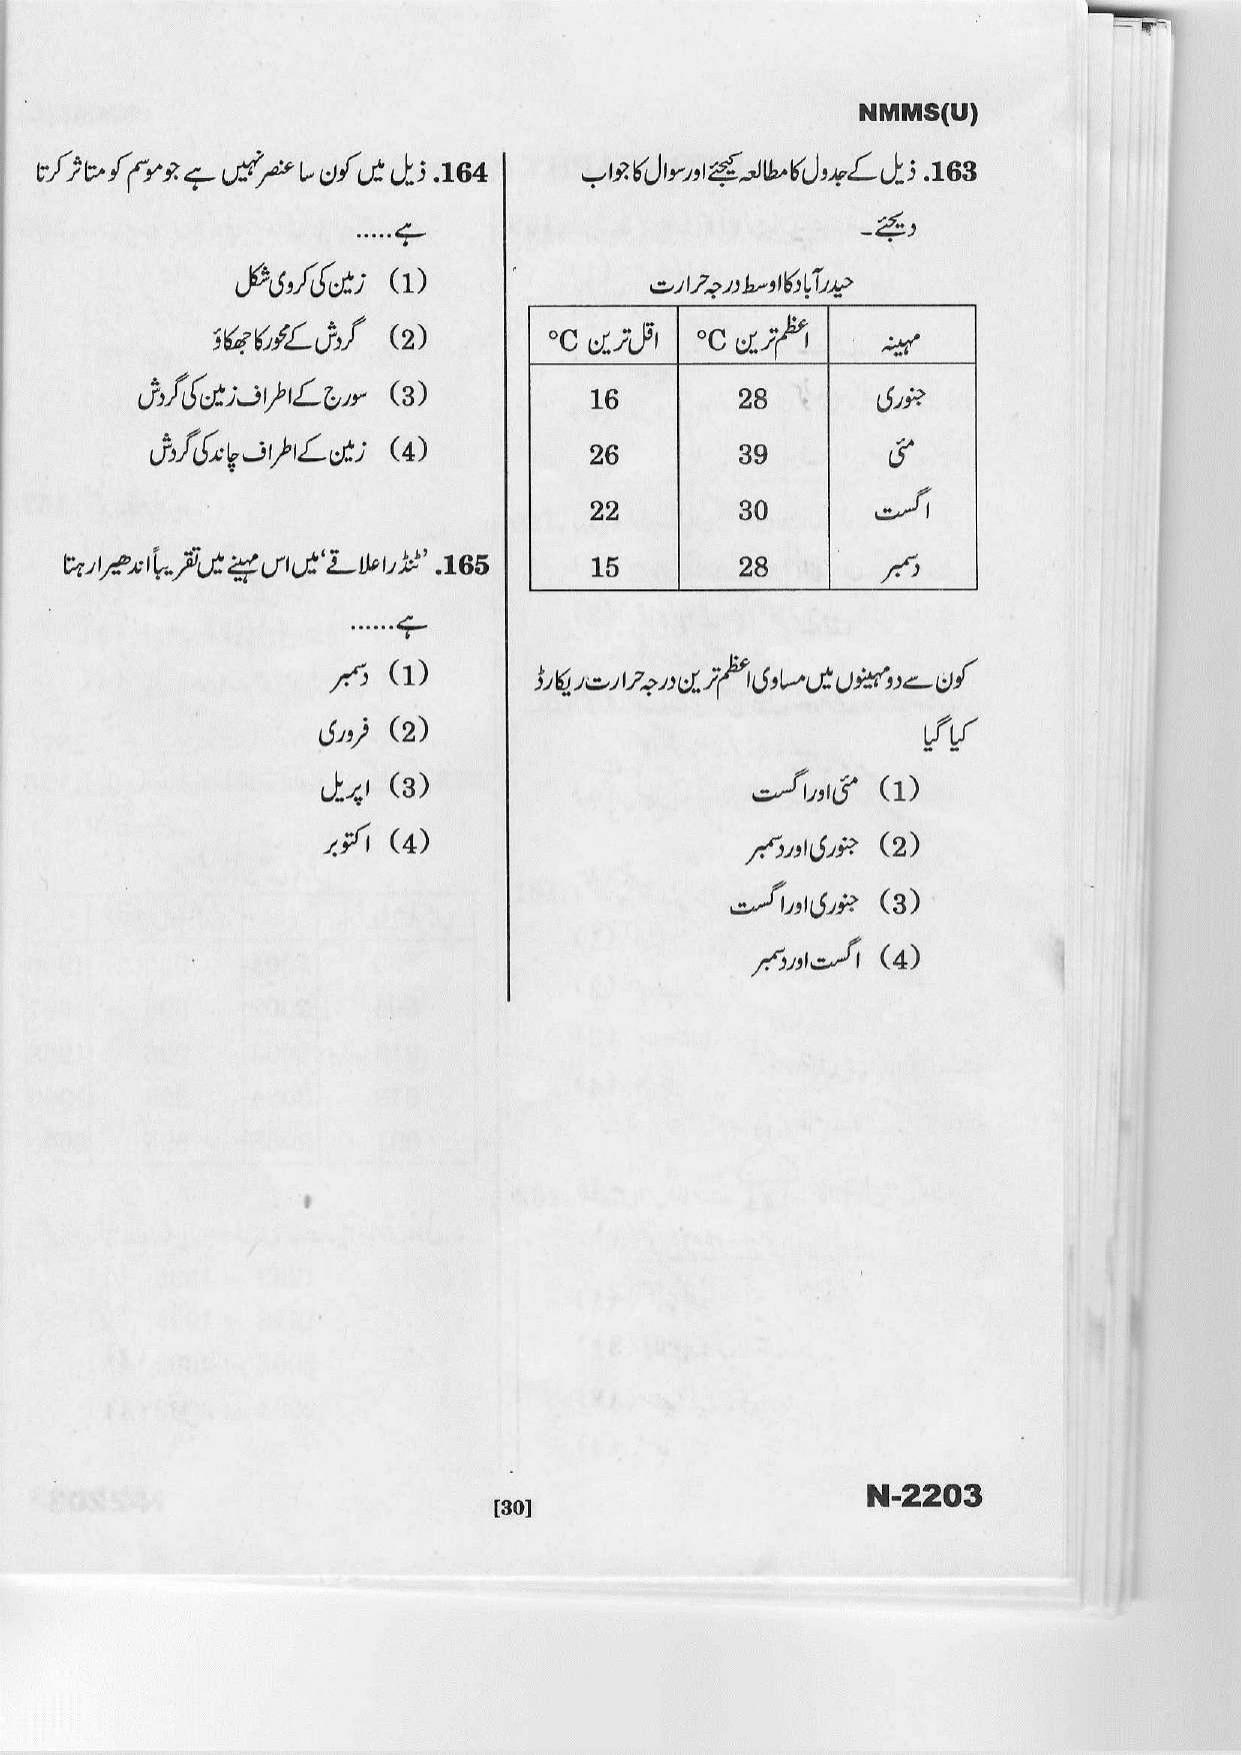 NMMS(U)
163. ذیل کے جدول کا مطالعہ کیجئے اور سوال کا جواب
دیجئے۔
حیدرآباد کا اوسط درجہ حرارت
مہینہ اعظم ترین °C اقل ترین °C
جنوری 28 16
مئی 39 26
اگست 30 22
دسمبر 28 15
کون سے دو مہینوں میں مساوی اعظم ترین درجہ حرارت ریکارڈ
کیا گیا
(1) مئی اور اگست
(2) جنوری اور دسمبر
(3) جنوری اور اگست
(4) اگست اور دسمبر
164. ذیل میں کون سا عنصر نہیں ہے جو موسم کو متاثر کرتا
ہے.....
(1) زمین کی کروی شکل
(2) گردش کے محور کا جھکاؤ
(3) سورج کے اطراف زمین کی گردش
(4) زمین کے اطراف چاند کی گردش
165. ’ٹنڈرا علاقے‘ میں اس مہینے میں تقریباً اندھیرا رہتا
ہے......
(1) دسمبر
(2) فروری
(3) اپریل
(4) اکتوبر
[30]
N-2203